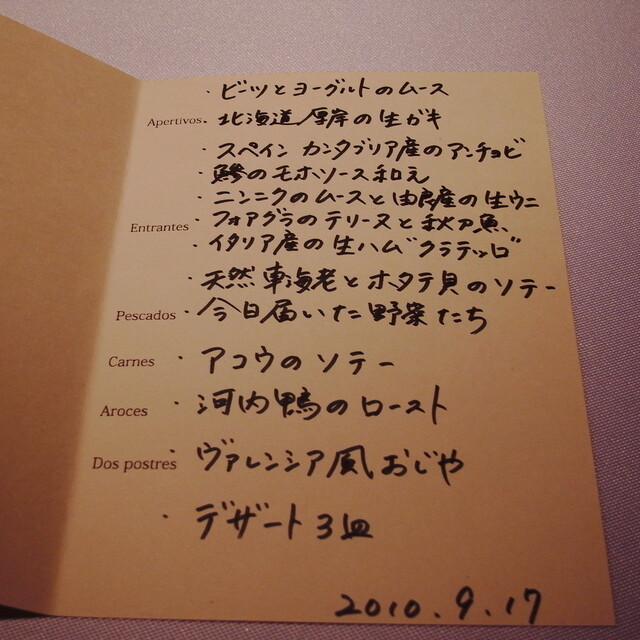 ・ビーツとヨーグルトのムース
Apertivos・北海道厚岸の生ガキ
・スペイン カンタブリア産のアンチョビ
・鯵のモホソース和え
・ニンニクのムースと由良産の生ウニ
Entrantes・フォアグラのテリーヌと秋刀魚、
・イタリア産の生ハム"クラテッロ"
・天然 車海老とホタテ貝のソテー
Pescados・今日届いた野菜たち
Carnes・アコウのソテー
Aroces・河内鴨のロースト
Dos postres・ヴァレンシア風おじや
・デザート3皿
2010.9.17